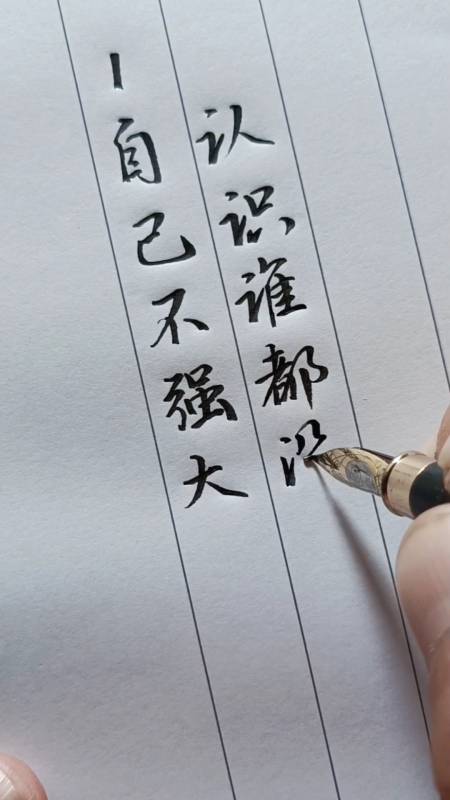 丨自己不强大
认识谁都